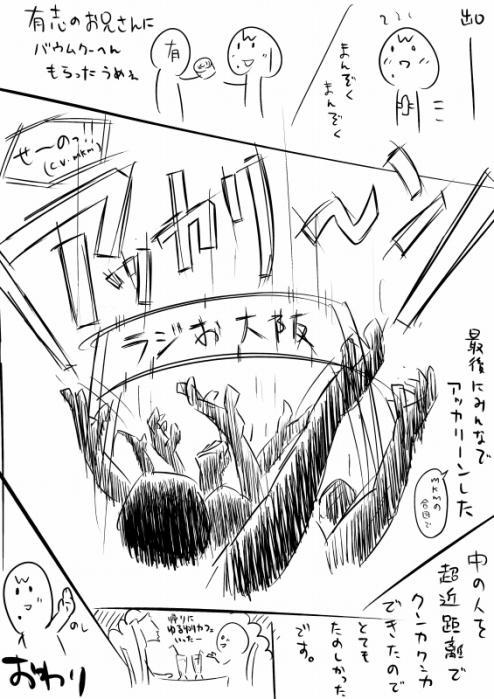 出口
まんぞく
まんぞく
有志のお兄さんに
バウムクーヘン
もらったうめぇ
有
せーのっ!!
(C.V.mkm)
アッカリ〜ン
ラジお大阪
最後にみんなで
アッカリーンした
mkmの
合図で
中の人を
超近距離で
クンカクンカ
できたので
とても
たのしかった
です。
帰りに
ゆる州カフェ
いったー
のし
おわり